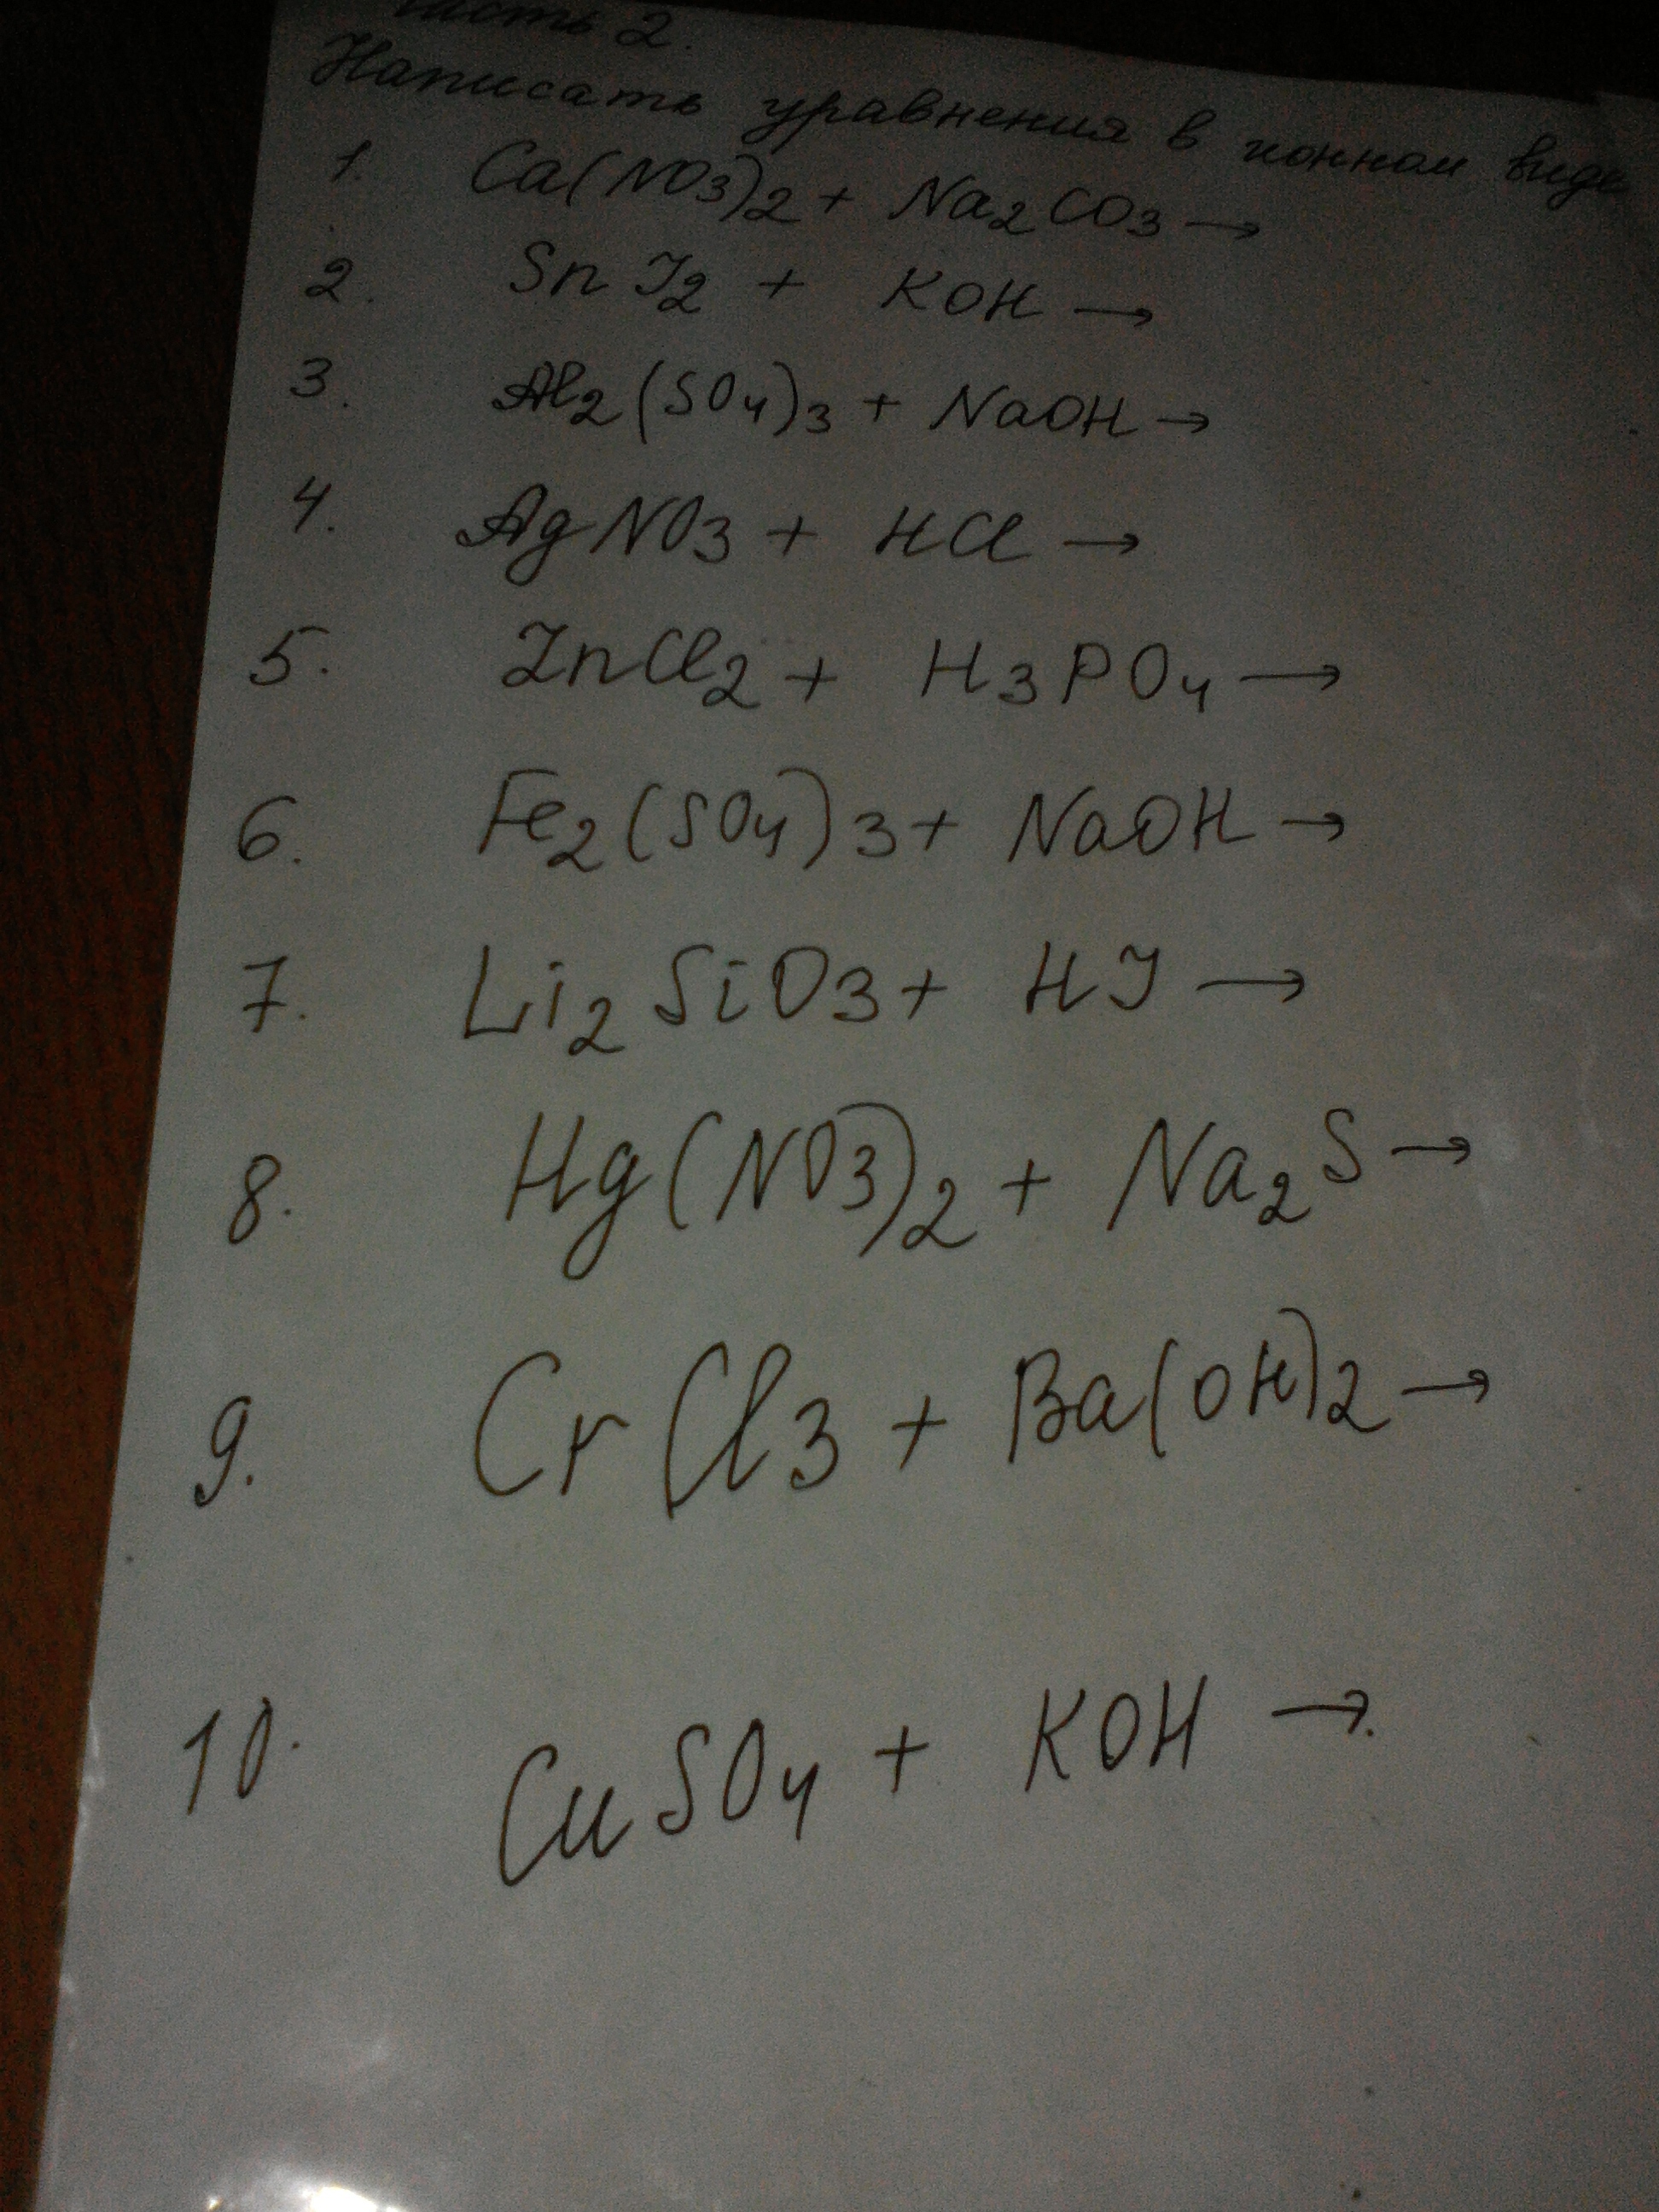 часть 2.
Написать уравнения в ионном виде
1. Ca(NO3)2 + Na2CO3 →
2. SnJ2 + KOH →
3. Al2(SO4)3 + NaOH →
4. AgNO3 + HCl →
5. ZnCl2 + H3PO4 →
6. Fe2(SO4)3 + NaOH →
7. Li2SiO3 + HJ →
8. Hg(NO3)2 + Na2S →
9. CrCl3 + Ba(OH)2 →
10. CuSO4 + KOH →.